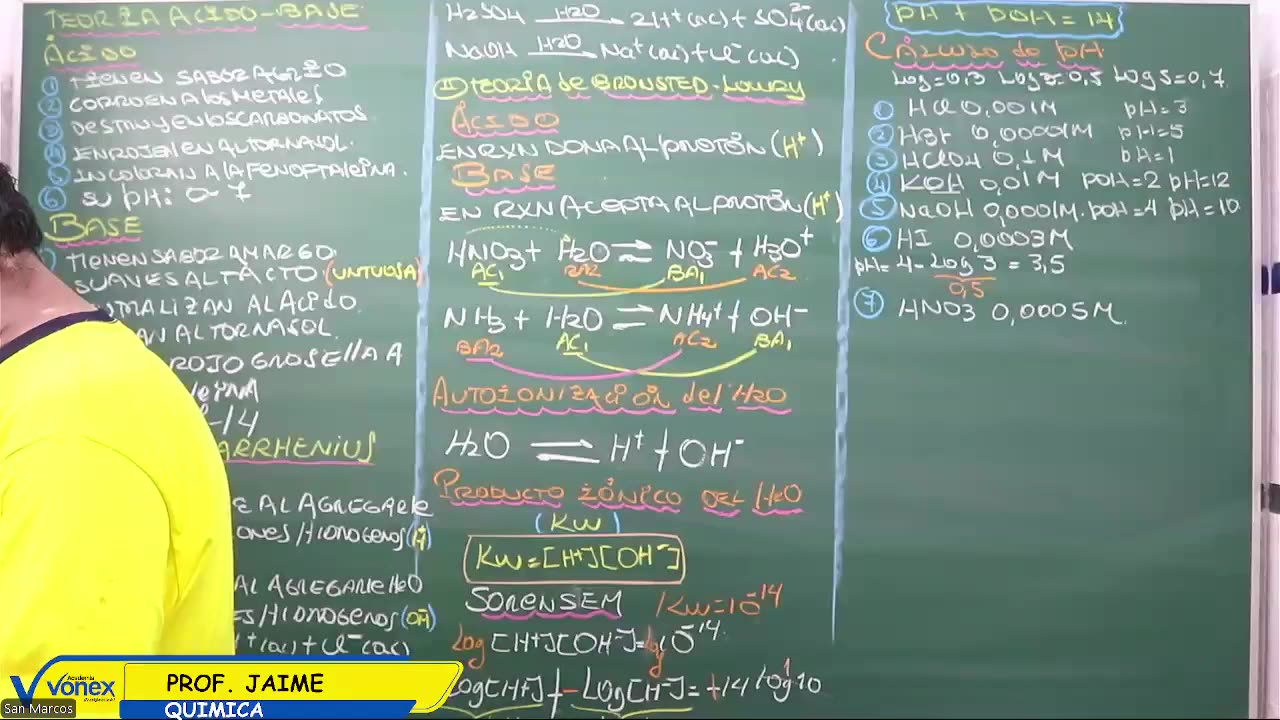 TEORIA ACIDO-BASE
ÁCIDO
① TIENEN SABOR AGRIO
② CORROEN A los METALES
③ DESTRUYEN LOS CARBONATOS
④ ENROJECEN AL TORNASOL.
⑤ INCOLORAN A LA FENOFTALEINA.
⑥ SU pH: 0 ~ 7
BASE
TIENEN SABOR AMARGO.
SUAVES AL TACTO (UNTUOSA)
AL ACIDO.
AL TORNASOL.
ROJO GROSELLA A
-14
ARRHENIUS
E AL AGREGARLE
ONES/HIDROGENOS (H⁺)
AL AGREGARLE H2O
ES/HIDROGENOS (OH⁻)
H⁺(ac) + Cl⁻(ac)
H2SO4 —H2O— 2H⁺(ac) + SO4²⁻(ac)
NaOH —H2O— Na⁺(ac) + Cl⁻(ac)
II) TEORIA de BRONSTED-LOWRY
ÁCIDO
EN RXN DONA AL PROTÓN (H⁺)
BASE
EN RXN ACEPTA AL PROTÓN (H⁺)
HNO3 + H2O ⇌ NO3⁻ + H3O⁺
AC1 BA2 BA1 AC2
NH3 + H2O ⇌ NH4⁺ + OH⁻
BA2 AC1 AC2 BA1
AUTOIONIZACIÓN del H2O
H2O ⇌ H⁺ + OH⁻
PRODUCTO IÓNICO DEL H2O
(Kw)
Kw = [H⁺][OH⁻]
SORENSEM Kw = 10⁻¹⁴
log [H⁺][OH⁻] = log 10⁻¹⁴
Log[H⁺] + -Log[H⁻] = +14 log 10 1
pH + pOH = 14
CÁLCULO de pH
Log=0,3 Log3=0,5 Log5=0,7
① HCl 0,001M pH=3
② HBr 0,00001M pH=5
③ HClO4 0,1M pH=1
④ KOH 0,01M pOH=2 pH=12
⑤ NaOH 0,0001M. pOH=4 pH=10
⑥ HI 0,0003M
pH= 4 - Log 3 = 3,5
0,5
⑦ HNO3 0,0005M.
Academia
Vonex
San Marcos
PROF. JAIME
QUIMICA